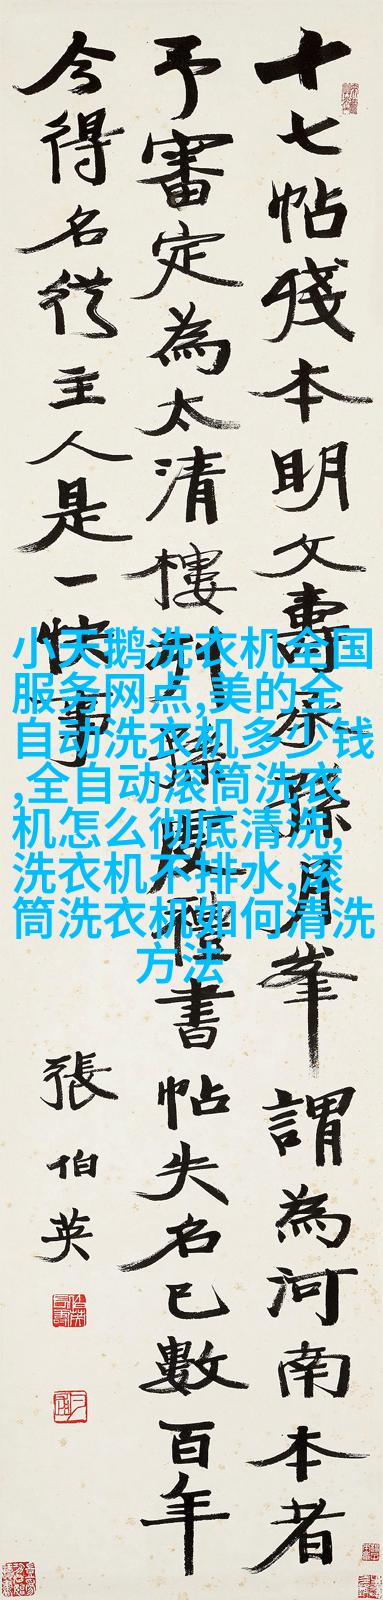 十七帖殘本明文壽承孫月峯謂為河南本者
予審定為太清樓刊書帖失名已數百年
今得名從主人是一快事
張伯英
小天鹅洗衣机全国
服务网点,美的全
自动洗衣机多少钱
,全自动滚筒洗衣
机怎么彻底清洗,
洗衣机不排水,滚
筒洗衣机如何清洗
方法